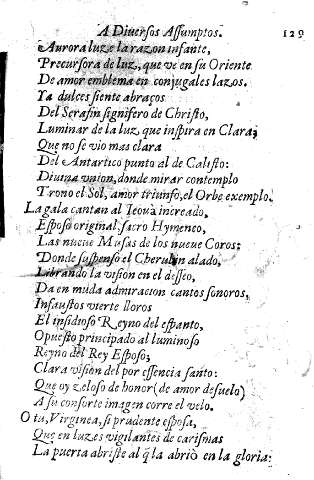 A Diuersos Assumptos. 129
Aurora luze la razon infante,
Precursora de luz, que ve en su Oriente
De amor emblema en conjugales lazos.
Ya dulces siente abraços
Del Serafin signifero de Christo,
Luminar de la luz, que inspira en Clara;
Que no se vio mas clara
Del Antartico punto al de Calisto:
Diuina vnion, donde mirar contemplo
Trono el Sol, amor triunfo, el Orbe exemplo.
La gala cantan al Ieoua increado,
Esposo original, sacro Hymeneo,
Las nueue Musas de los nueue Coros:
Donde suspenso el Cherubin alado,
Librando la vision en el desseo,
Da en muda admiracion cantos sonoros,
Infaustos vierte lloros
El insidioso Reyno del espanto,
Opuesto principado al luminoso
Reyno del Rey Esposo;
Clara vision del por essencia santo:
Que oy zeloso de honor (de amor desuelo)
A su consorte imagen corre el velo.
O tu, Virginea, si prudente esposa,
Que en luzes vigilantes de carismas
La puerta abriste al q̃ la abriò en la gloria: